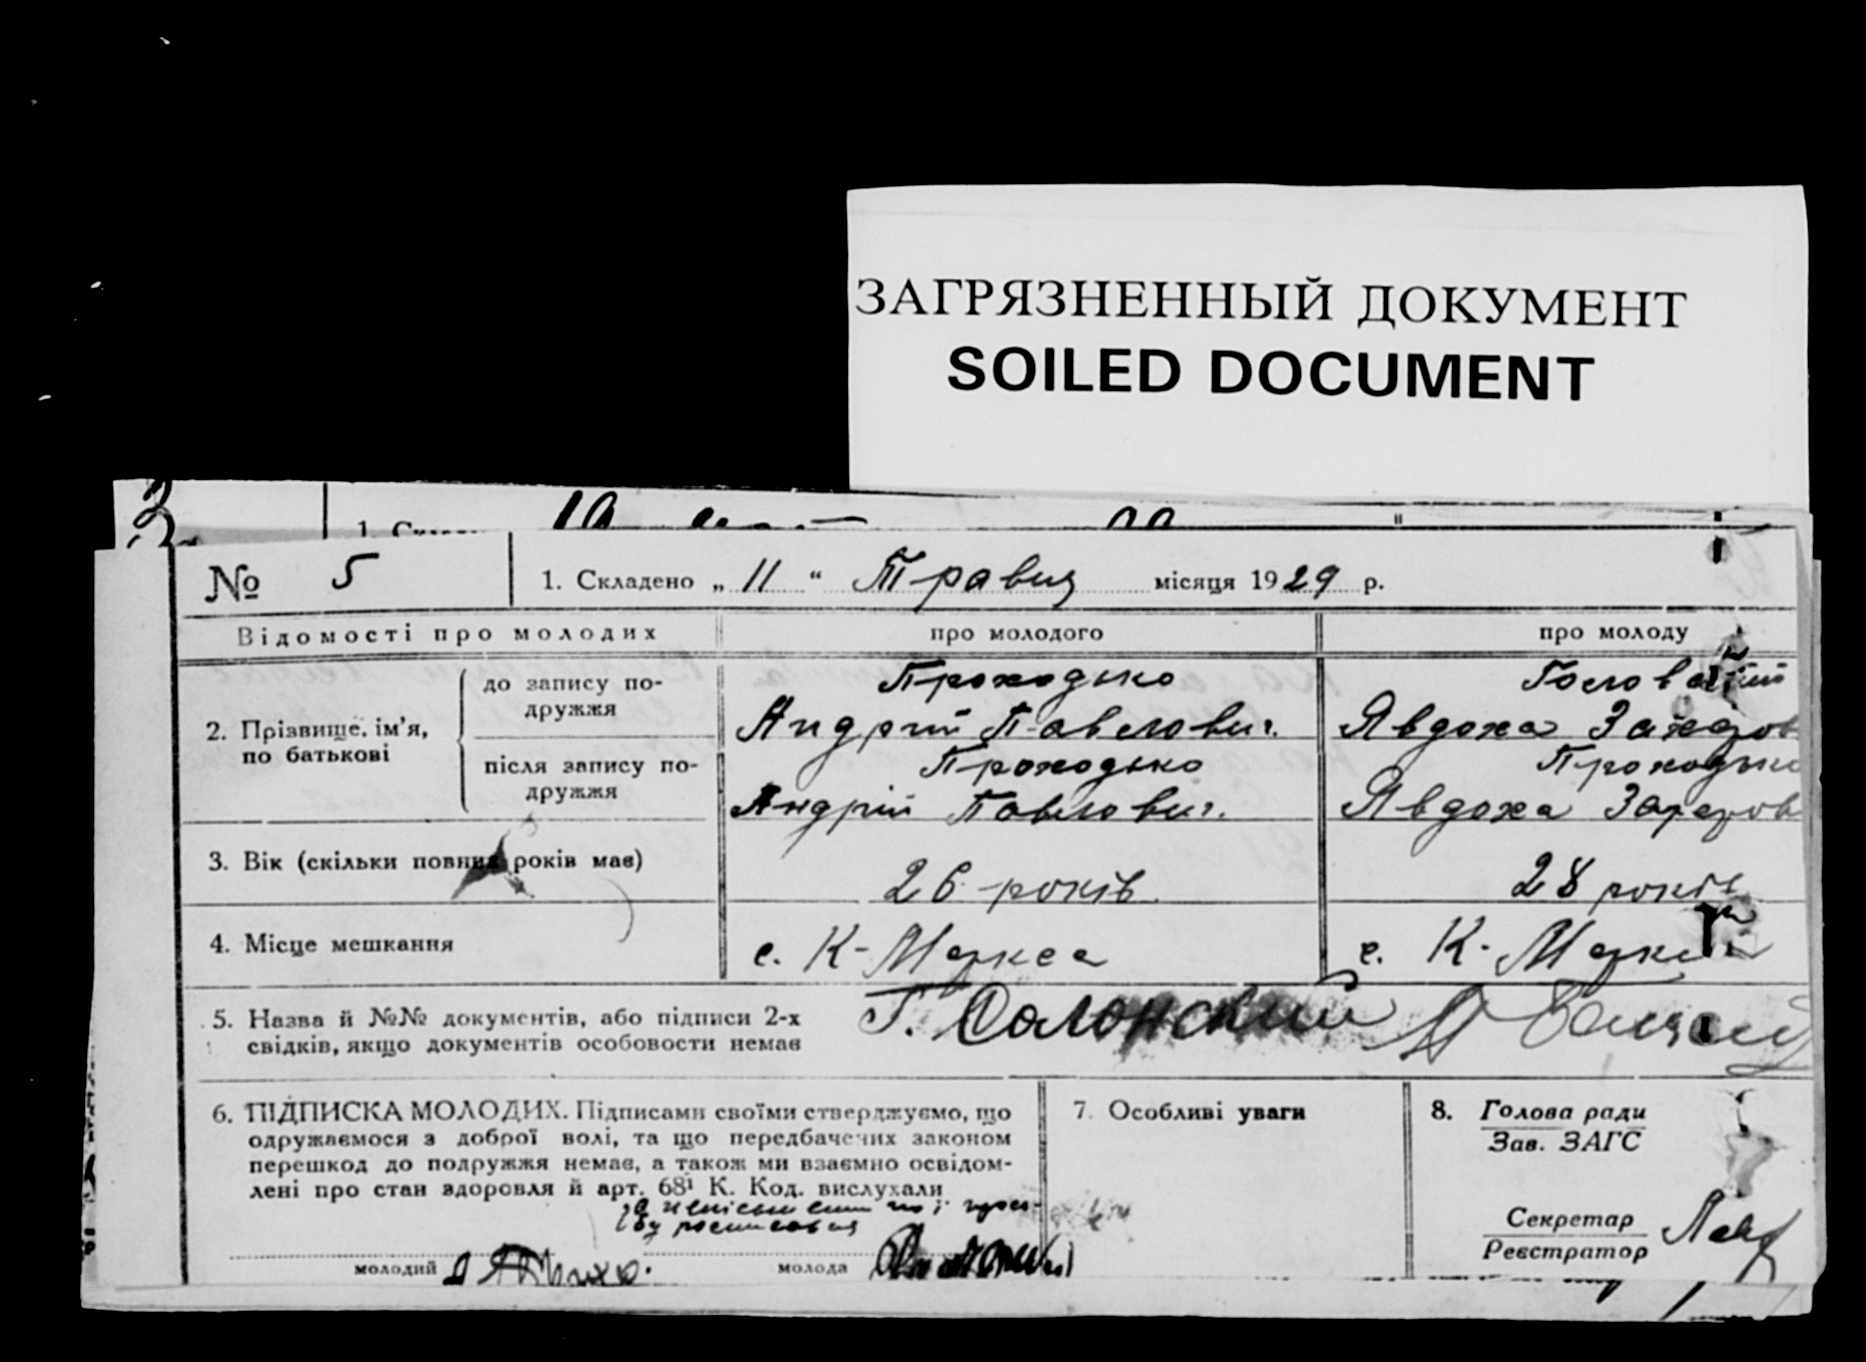 ЗАГРЯЗНЕННЫЙ ДОКУМЕНТ
SOILED DOCUMENT
№ 5
1. Складено „ 11 “ Травня місяця 1929 р.
Відомості про молодих
про молодого
про молоду
2. Прізвище, ім’я, по батькові
до запису по-
дружжя
Проходько
Андрій Павлович.
Явдоха
після запису по-
дружжя
Проходько
Андрій Павлович.
Проходько
Явдоха
3. Вік (скільки повних років має)
26 років
28 років
4. Місце мешкання
с. К-Маркса
с. К-Маркса
5. Назва й №№ документів, або підписи 2-х
свідків, якщо документів особовости немає
Г. Солонский
6. ПІДПИСКА МОЛОДИХ. Підписами своїми стверджуємо, що
одружаємося з доброї волі, та що передбачених законом
перешкод до подружжя немає, а також ми взаємно освідом-
лені про стан здоровля й арт. 68¹ К. Код. вислухали
молодий
молода
7. Особливі уваги
8. Голова ради
Зав. ЗАГС
Секретар
Реєстратор